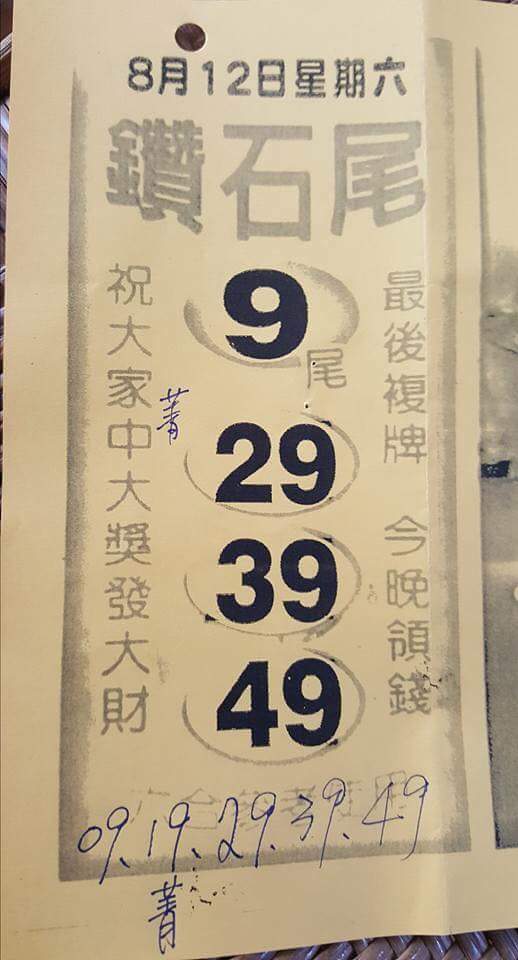 8月12日星期六
鑽石尾
最後複牌 今晚領錢
9
尾
29
39
49
祝大家中大獎發大財
菁
09.19.29.39.49
菁